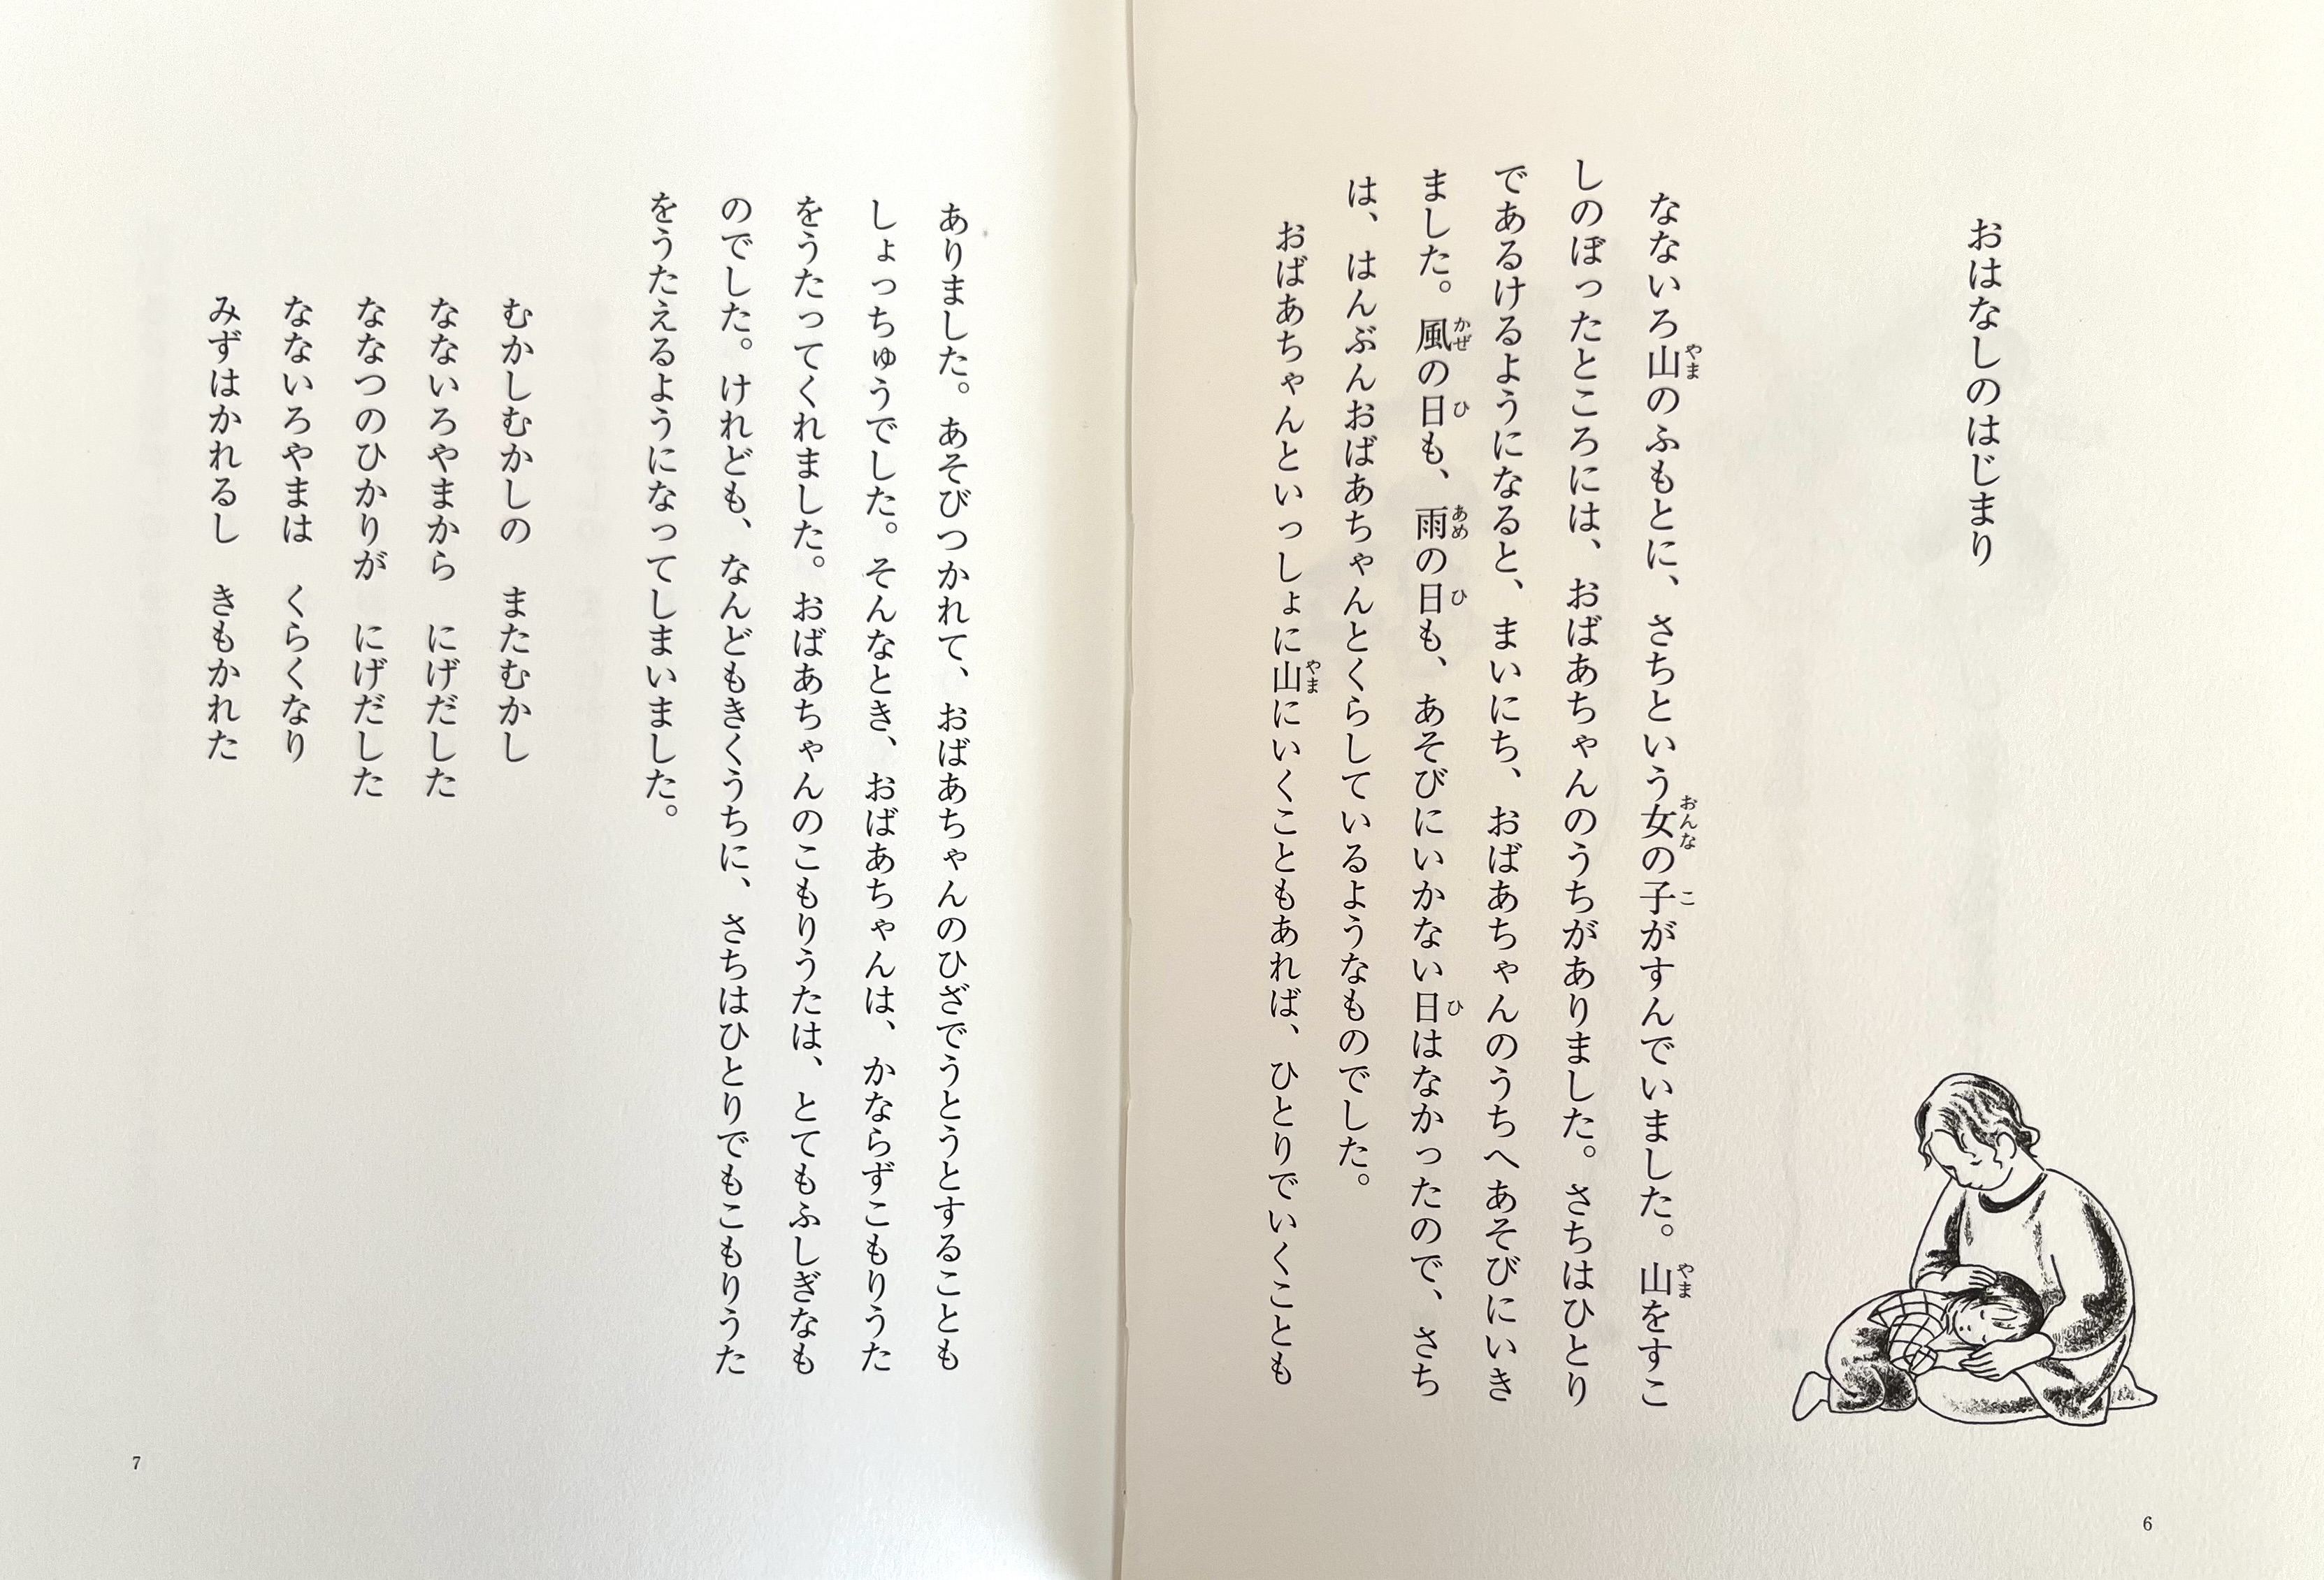 おはなしのはじまり
なないろ山のふもとに、さちという女の子がすんでいました。山をすこ
しのぼったところには、おばあちゃんのうちがありました。さちはひとり
であるけるようになると、まいにち、おばあちゃんのうちへあそびにいき
ました。風の日も、雨の日も、あそびにいかない日はなかったので、さち
は、はんぶんおばあちゃんとくらしているようなものでした。
おばあちゃんといっしょに山にいくこともあれば、ひとりでいくことも
やま
おんな
こ
やま
かぜ
ひ
あめ
ひ
ひ
やま
6
ありました。あそびつかれて、おばあちゃんのひざでうとうとすることも
しょっちゅうでした。そんなとき、おばあちゃんは、かならずこもりうた
をうたってくれました。おばあちゃんのこもりうたは、とてもふしぎなも
のでした。けれども、なんどもきくうちに、さちはひとりでもこもりうた
をうたえるようになってしまいました。
むかしむかしの　またむかし
なないろやまから　にげだした
ななつのひかりが　にげだした
なないろやまは　くらくなり
みずはかれるし　きもかれた
7